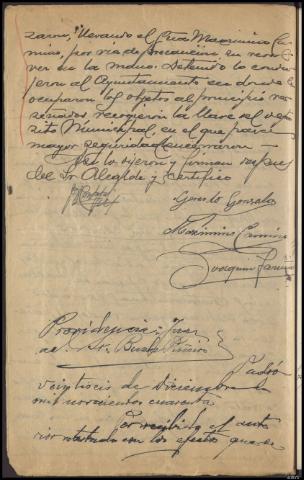 zarse, llevando el Cura Maximino Ca-
mino, por vía de precaución un revol-
ver en la mano. Detenido lo condu-
jeron al Ayuntamiento en donde le
ocuparon los objetos al principio re-
señados recogieron la llave del depó-
sito Municipal, en el que para
mayor seguridad encerraron
Así lo dijeron y firman después
del Sr Alcalde y certifico
Gerardo Gonzalez
Maximino Camino
Joaquin
Providencia: Juez
Sr.
Padrón
veintiseis de Diciembre de
mil novecientos cuarenta
Por recibido el ante
rior atestado con los efectos que se